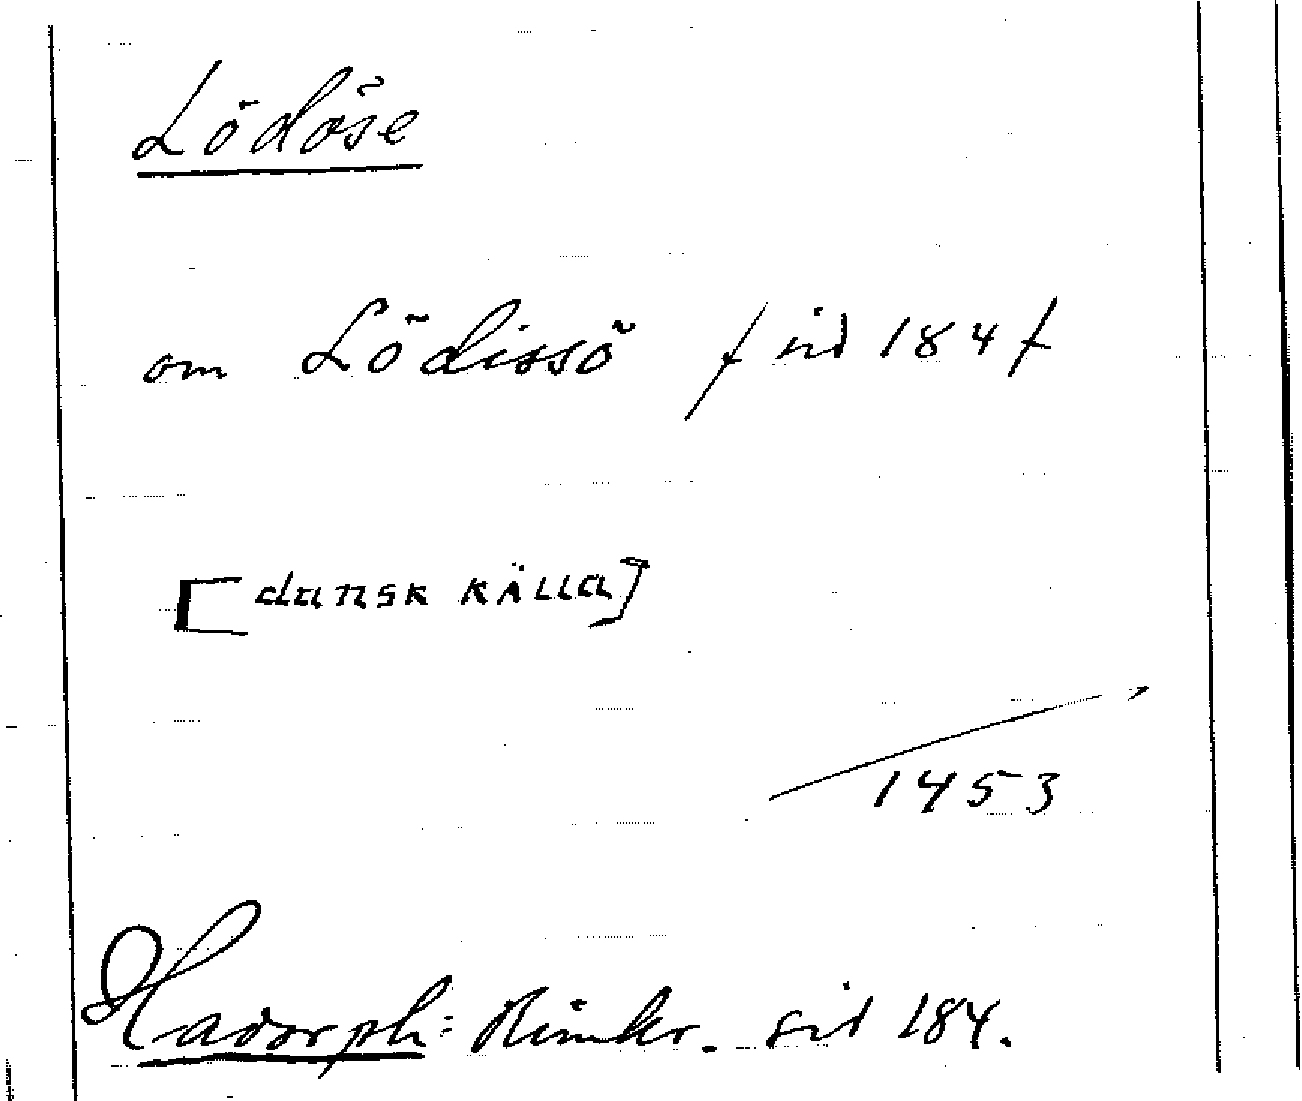 Lödöse
om Lödissö / sid 184 /
[dansk källa]
1453
Hadorph: Rimkr. sid 184.